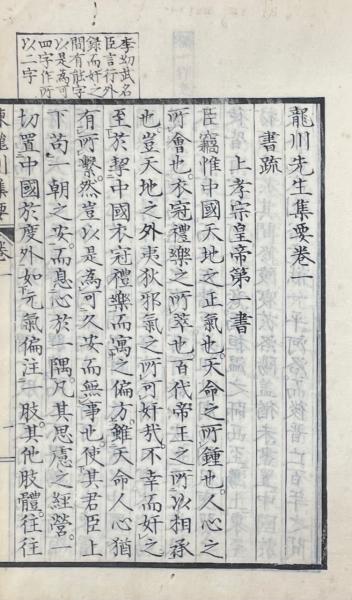 龍川先生集要卷一
書疏
上孝宗皇帝第一書
臣竊惟中國天地之正氣也天命之所鍾也人心之
所會也衣冠禮樂之所萃也百代帝王之所以相承
也豈天地之外夷狄邪氣之所可奸哉不幸而奸之
至於挈中國衣冠禮樂而寓之偏方雖天命人心猶
有所繫然豈以是為可久安而無事也使其君臣上
下苟一朝之安而息心於一隅凡其思慮之經營一
切置中國於度外如元氣偏注一肢其他肢體往往
李幼武名
臣言行外
録而奸之
間有能字
以是為可
四字作所
以二字